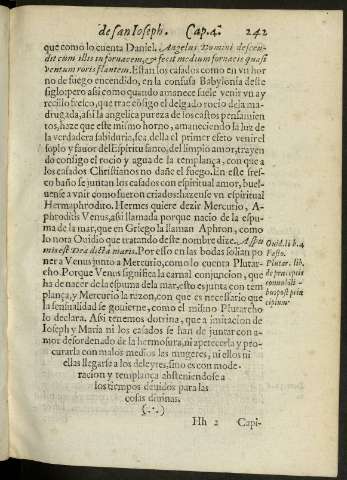 de san Ioseph. Cap. 4. 242
que como lo cuenta Daniel. Angelus Domini descen-
dit cum illis in fornacem, & fecit medium fornacis quasi
ventum roris flantem. Estan los casados como en vn hor
no de fuego encendido, en la confusa Babylonia deste
siglo: pero assi como quando amanece suele venir vn ay
rezillo fresco, que trae cõsigo el delgado rocio de la ma
drugada, assi la angelica pureza de los castos pensamien
tos, haze que este mismo horno, amaneciendo la luz de
la verdadera sabiduria, sea della el primer efeto venir el
soplo y fauor del Espiritu santo, del limpio amor, trayen
do consigo el rocio y agua de la templança, con que a
los casados Christianos no dañe el fuego. En este fres-
co baño se juntan los casados con espiritual amor, buel-
uense a vnir como fueron criados: hazense vn espiritual
Hermaphrodito. Hermes quiere dezir Mercurio, A-
phroditis Venus, assi llamada porque nacio de la espu-
ma de la mar, que en Griego la llaman Aphron, como
lo nota Ouidio que tratando deste nombre dize. A spu
mis est Dea dicta maris. Por esso en las bodas solian po
ner a Venus junto a Mercurio, como lo cuenta Plutar-
cho. Porque Venus significa la carnal conjuncion, que
ha de nacer de la espuma de la mar, esto es junta con tem
plança, y Mercurio la razon, con que es necessario que
la sensualidad se gouierne, como el mismo Plutarcho
lo declara. Assi tenemos dotrina, que a imitacion de
Ioseph y Maria ni los casados se han de juntar con a-
mor desordenado de la hermosura, ni apetecerla y pro-
curarla con malos medios las mugeres, ni ellos ni
ellas llegarse a los deleytes, sino es con mode-
racion y templança absteniendose a
los tiempos deuidos para las
cosas diuinas.
(.·.)
Ouid. li. 4.
Fasto.
Plutar. lib.
de præceptis
connubiali-
bus post prin
cipium.
Hh 2 Capi-